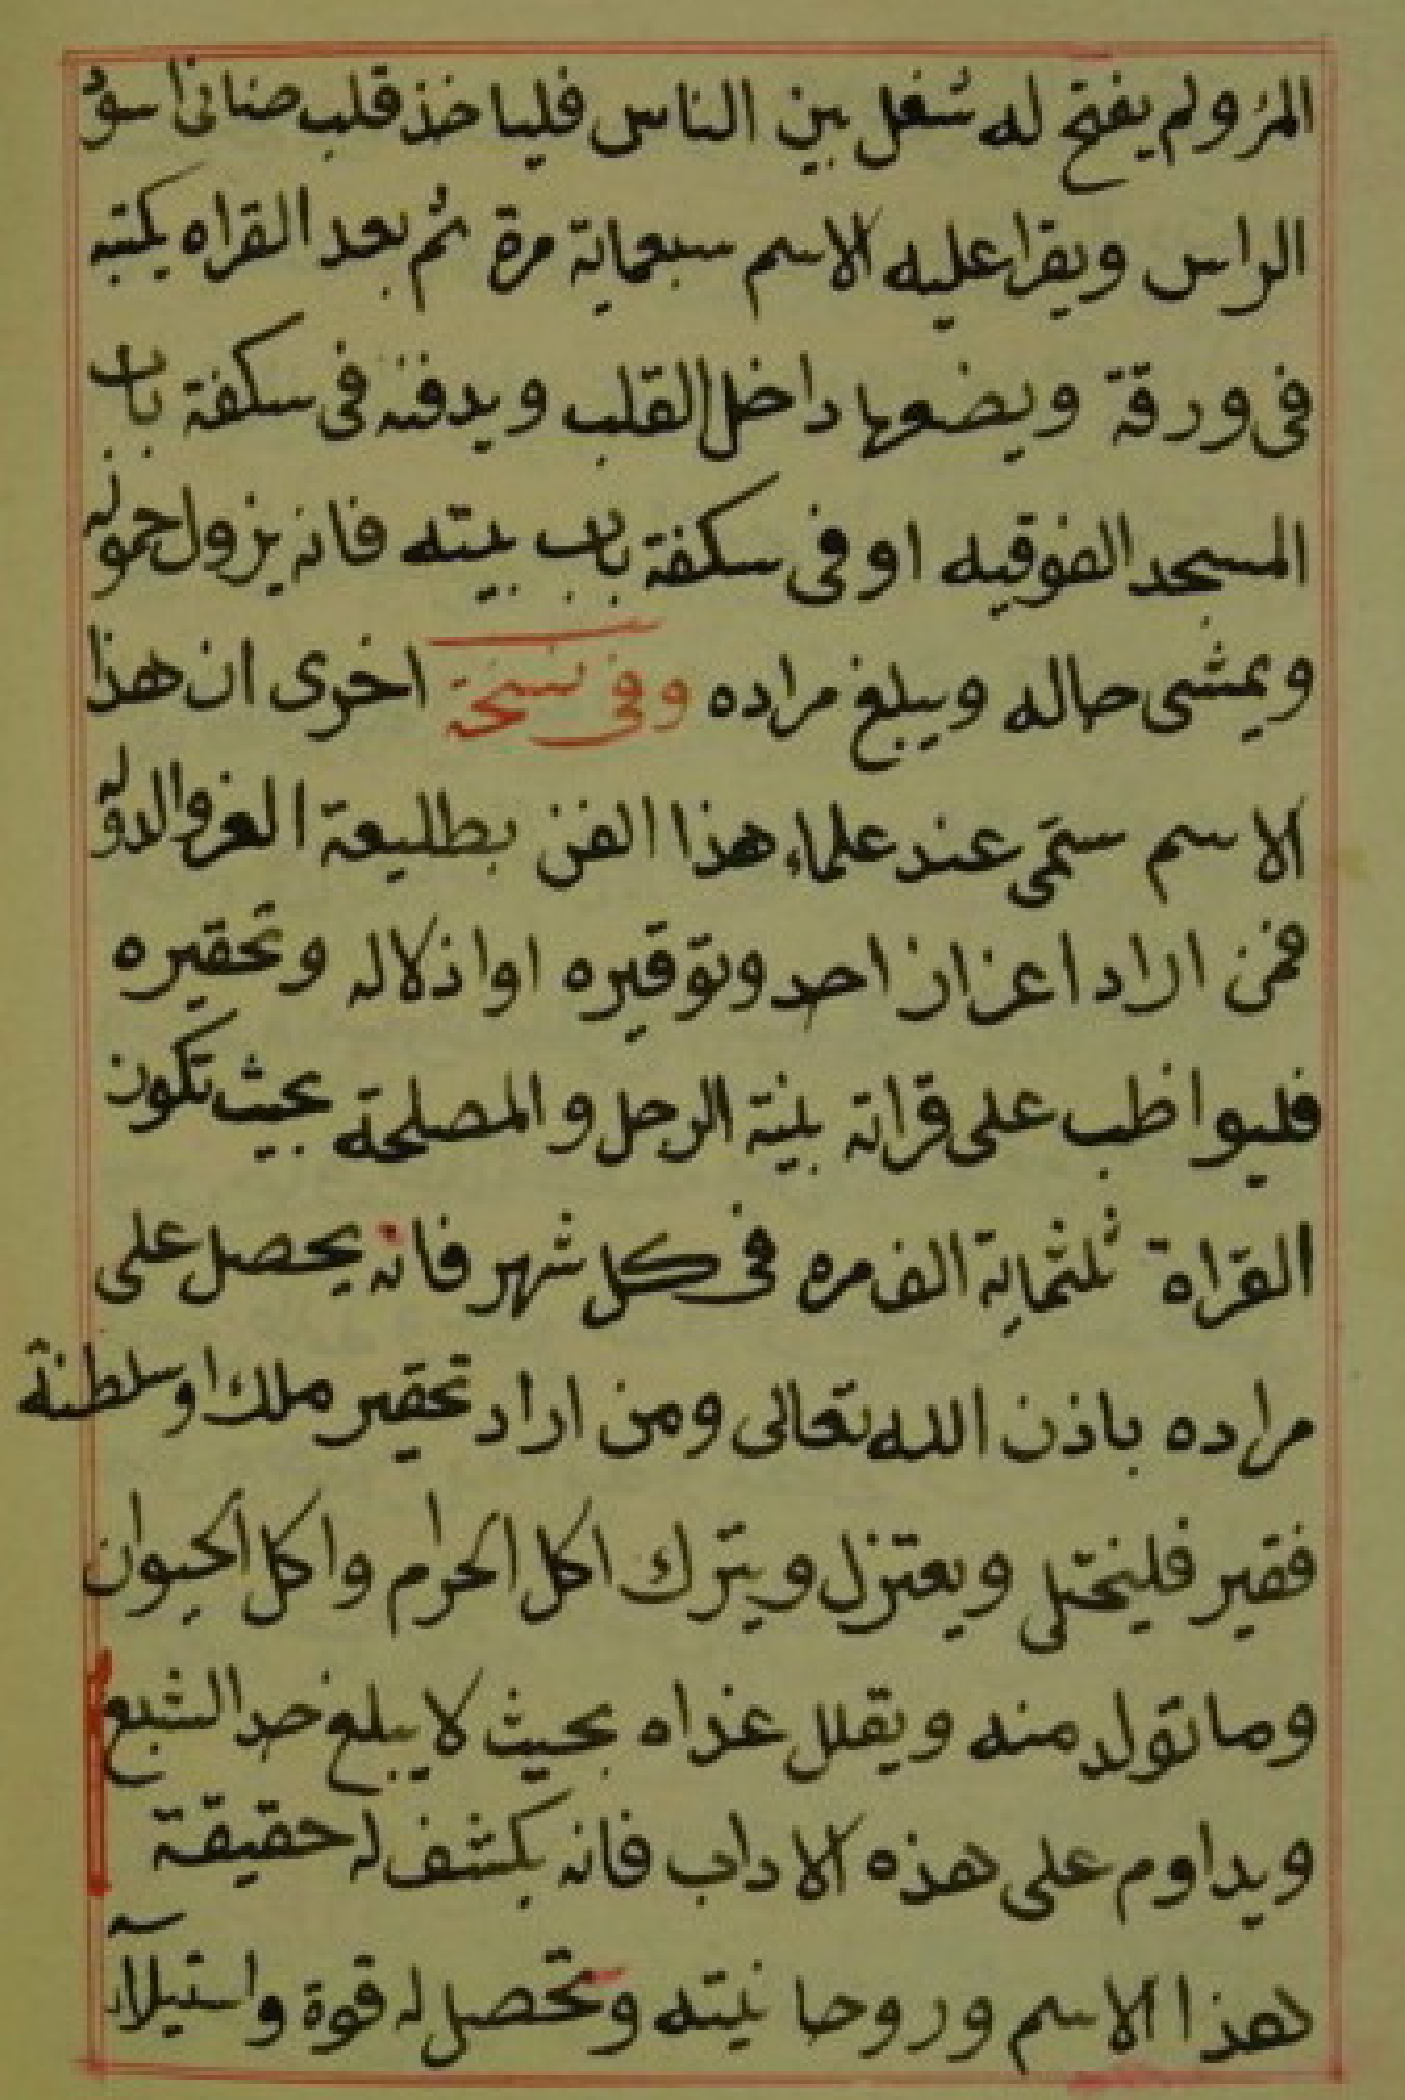 المرؤ ولم يفتح له شغل بين الناس فلياخذ قلب ضاني اسود
الراس ويقرا عليه الاسم سبعماية مرة ثم بعد القراه يكتبه
في ورقة ويضعها داخل القلب ويدفنه في سكفة باب
المسجد الفوقيه او في سكفة باب بيته فانه يزول خموله
ويمشى حاله ويبلغ مراده وفي نسخة اخرى ان هذا
الاسم ستمى عند علماء هذا الفن بطليعة العز والدولة
فمن اراد اعزاز احد وتوقيره او اذلاله وتحقيره
فليواظب على قراته بنية الرجل والمصلحة بحيث تكون
القراة ثلثماية الف مره في كل شهر فانه يحصل على
مراده باذن الله تعالى ومن اراد تحقير ملك او سلطنة
فقير فليختلى ويعتزل ويترك اكل الحرام واكل الحيوان
وما تولد منه ويقلل غذاه بحيث لا يبلغ حد الشبع
ويداوم على هذه الاداب فانه يكشف له حقيقة
هذا الاسم وروحانيته وتحصل له قوة واستيلآء